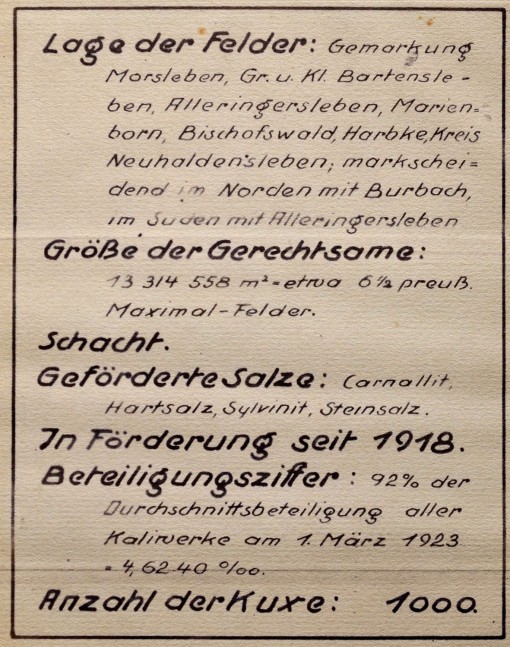 Lage der Felder: Gemarkung
Morsleben, Gr. u. Kl. Bartensle-
ben, Alleringersleben, Marien=
born, Bischofswald, Harbke, Kreis
Neuhaldensleben; markschei=
dend im Norden mit Burbach,
im Süden mit Alleringersleben
Größe der Gerechtsame:
13 314 558 m² = etwa 6½ preuß.
Maximal-Felder.
Schacht.
Geförderte Salze: Carnallit,
Hartsalz, Sylvinit, Steinsalz.
In Förderung seit 1918.
Beteiligungsziffer: 92% der
Durchschnittsbeteiligung aller
Kaliwerke am 1. März 1923
= 4,6240 ‰.
Anzahl der Kuxe: 1000.